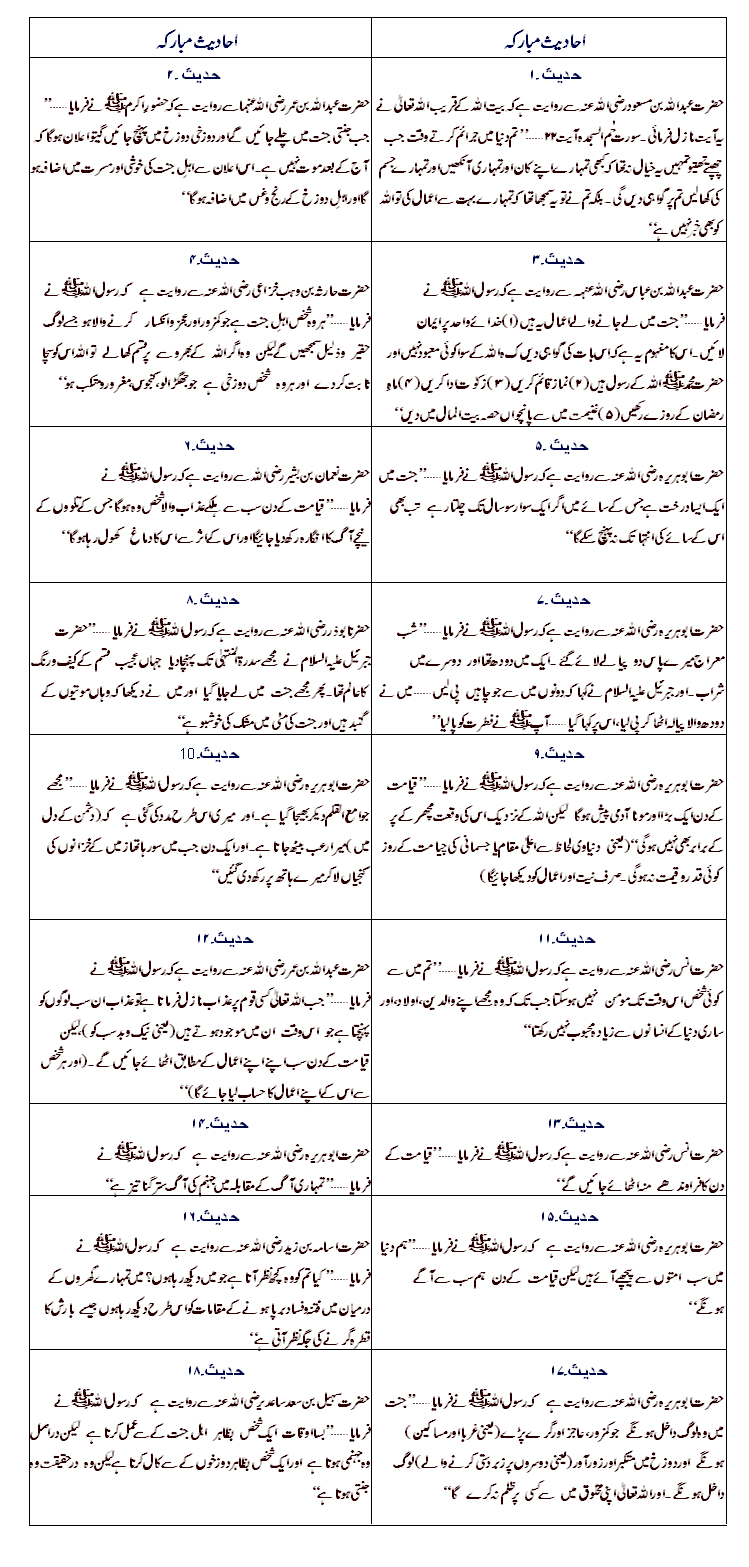 احادیث مبارکہ
احادیث مبارکہ
حدیث ۔۱
حضرت عبداللہ بن مسعود رضی اللہ عنہ سے روایت ہے کہ بیت اللہ کے قریب اللہ تعالیٰ نے
یہ آیت نازل فرمائی ۔ سورت حٰم السجدہ آیت ۲۲......”تم دنیا میں جرائم کرتے وقت جب
چھپتے تھے تو تمہیں یہ خیال نہ تھا کہ کبھی تمہارے اپنے کان اور تمہاری آنکھیں اور تمہارے جسم
کی کھالیں تم پر گواہی دیں گی ۔ بلکہ تم نے تو یہ سمجھا تھا کہ تمہارے بہت سے اعمال کی تو اللہ
کو بھی خبر نہیں ہے“
حدیث ۔۲
حضرت عبداللہ بن عمر رضی اللہ عنہما سے روایت ہے کہ حضور اکرم ﷺ نے فرمایا ......”
جب جنتی جنت میں چلے جائیں گے اور دوزخی دوزخ میں پہنچ جائیں گے تو اعلان ہوگا کہ
آج کے بعد موت نہیں ہے ۔ اس اعلان سے اہل جنت کی خوشی اور مسرت میں اضافہ ہو
گا اور اہل دوزخ کے رنج و غم میں اضافہ ہوگا“
حدیث ۔۳
حضرت عبداللہ بن عباس رضی اللہ عنہہ سے روایت ہے کہ رسول اللہ ﷺ نے
فرمایا ......”جنت میں لے جانے والے اعمال یہ ہیں (۱) خدائے واحد پر ایمان
لائیں ۔ اس کا مفہوم یہ ہے کہ اس بات کی گواہی دیں ک ہ اللہ کے سوا کوئی معبود نہیں اور
حضرت محمد ﷺ اللہ کے رسول ہیں (۲) نماز قائم کریں (۳) زکوت ادا کریں (۴) ماہ
رمضان کے روزے رکھیں (۵) غنیمت میں سے پانچواں حصہ بیت المال میں دیں“
حدیث ۔۴
حضرت حارثہ بن وہب خزاعی رضی اللہ عنہ سے روایت ہے کہ رسول اللہ ﷺ نے
فرمایا ......”ہر وہ شخص اہل جنت ہے جو کمزور اور عجز و انکسار کرنے والا ہو جسے لوگ
حقیر و ذلیل سمجھیں گے لیکن وہ اگر اللہ کے بھروسے پر قسم کھا لے تو اللہ اس کو سچا
ثابت کر دے اور ہر وہ شخص دوزخی ہے جو جھگڑالو، کنجوس، مغرور و متکبر ہو“
حدیث ۔۵
حضرت ابوہریرہ رضی اللہ عنہ سے روایت ہے کہ رسول اللہ ﷺ نے فرمایا ......”جنت میں
ایک ایسا درخت ہے جس کے سائے میں اگر ایک سوار سو سال تک چلتا رہے تب بھی
اس کے سائے کی انتہا تک نہ پہنچ سکے گا“
حدیث ۔۶
حضرت نعمان بن بشیر رضی اللہ سے روایت ہے کہ رسول اللہ ﷺ نے
فرمایا ......”قیامت کے دن سب سے ہلکے عذاب والا شخص وہ ہوگا جس کے تلووں کے
نیچے آگ کا انگارہ رکھ دیا جائیگا اور اس کے اثر سے اس کا دماغ کھول رہا ہوگا“
حدیث ۔۷
حضرت ابوہریرہ رضی اللہ عنہ سے روایت ہے کہ رسول اللہ ﷺ نے فرمایا ......”شب
معراج میرے پاس دو پیالے لائے گئے ۔ ایک میں دودھ تھا اور دوسرے میں
شراب ۔ اور جبرئیل علیہ السلام نے کہا کہ دونوں میں سے جو چاہیں پی لیں ...... میں نے
دودھ والا پیالہ اٹھا کر پی لیا، اس پر کہا گیا ...... آپ ﷺ نے فطرت کو پا لیا“
حدیث ۔۸
حضرت ابوذر رضی اللہ عنہ سے روایت ہے کہ رسول اللہ ﷺ نے فرمایا ......”حضرت
جبرئیل علیہ السلام نے مجھے سدرۃ المنتہٰی تک پہنچا دیا جہاں عجیب قسم کے کیف و رنگ
کا عالم تھا ۔ پھر مجھے جنت میں لے جایا گیا اور میں نے دیکھا کہ وہاں موتیوں کے
گنبد ہیں اور جنت کی مٹی میں مشک کی خوشبو ہے“
حدیث ۔۹
حضرت ابوہریرہ رضی اللہ عنہ سے روایت ہے کہ رسول اللہ ﷺ نے فرمایا ......”قیامت
کے دن ایک بڑا اور موٹا آدمی پیش ہوگا لیکن اللہ کے نزدیک اس کی وقعت مچھر کے پر
کے برابر بھی نہیں ہوگی“ (یعنی دنیاوی لحاظ سے اعلیٰ مقام یا جسمانی کی جیامت کے روز
کوئی قدر و قیمت نہ ہوگی ۔ صرف نیت اور اعمال کو دیکھا جائیگا)
حدیث ۔10
حضرت ابوہریرہ رضی اللہ عنہ سے روایت ہے کہ رسول اللہ ﷺ نے فرمایا ......”مجھے
جوامع القلم دیکر بھیجا گیا ہے ۔ اور میری اس طرح مدد کی گئی ہے کہ (دشمن کے دل
میں) میرا رعب بیٹھ جاتا ہے ۔ اور ایک دن جب میں سو رہا تھا زمین کے خزانوں کی
کنجیاں لا کر میرے ہاتھ پر رکھ دی گئیں“
حدیث ۔۱۱
حضرت انس رضی اللہ عنہ سے روایت ہے کہ رسول اللہ ﷺ نے فرمایا ......”تم میں سے
کوئی شخص اس وقت تک مومن نہیں ہو سکتا جب تک کہ وہ مجھے اپنے والدین، اولاد، اور
ساری دنیا کے انسانوں سے زیادہ محبوب نہیں رکھتا“
حدیث ۔۱۲
حضرت عبداللہ بن عمر رضی اللہ عنہ سے روایت ہے کہ رسول اللہ ﷺ نے
فرمایا ......”جب اللہ تعالیٰ کسی قوم پر عذاب نازل فرماتا ہے تو عذاب ان سب لوگوں کو
پہنچتا ہے جو اس وقت ان میں موجود ہوتے ہیں (یعنی نیک و بد سب کو)، لیکن
قیامت کے دن سب اپنے اپنے اعمال کے مطابق اٹھائے جائیں گے ۔ (اور ہر شخص
سے اس کے اپنے اعمال کا حساب لیا جائے گا)“
حدیث ۔۱۳
حضرت انس رضی اللہ عنہ سے روایت ہے کہ رسول اللہ ﷺ نے فرمایا ......”قیامت کے
دن کافر اوندھے منہ اٹھائے جائیں گے“
حدیث ۔۱۴
حضرت ابوہریرہ رضی اللہ عنہ سے روایت ہے کہ رسول اللہ ﷺ نے
فرمایا ......”تمہاری آگ کے مقابلہ میں جہنم کی آگ ستر گنا تیز ہے“
حدیث ۔۱۵
حضرت ابوہریرہ رضی اللہ عنہ سے روایت ہے کہ رسول اللہ ﷺ نے فرمایا ......”ہم دنیا
میں سب امتوں سے پیچھے آئے ہیں لیکن قیامت کے دن ہم سب سے آگے
ہونگے“
حدیث ۔۱۶
حضرت اسامہ بن زید رضی اللہ عنہ سے روایت ہے کہ رسول اللہ ﷺ نے
فرمایا ......”کیا تم کو وہ کچھ نظر آتا ہے جو میں دیکھ رہا ہوں؟ میں تمہارے گھروں کے
درمیان میں فتنہ و فساد برپا ہونے کے مقامات کو اس طرح دیکھ رہا ہوں جیسے بارش کا
قطرہ گرنے کی جگہ نظر آتی ہے“
حدیث ۔۱۷
حضرت ابوہریرہ رضی اللہ عنہ سے روایت ہے کہ رسول اللہ ﷺ نے فرمایا ......”جنت
میں وہ لوگ داخل ہونگے جو کمزور، عاجز اور گرے پڑے (یعنی غربا اور مساکین)
ہونگے اور دوزخ میں متکبر اور زور آور (یعنی دوسروں پر زبردتی کرنے والے) لوگ
داخل ہونگے ۔ اور اللہ تعالیٰ اپنی مخلوق میں سے کسی پر ظلم نہ کرے گا“
حدیث ۔۱۸
حضرت سہیل بن سعد ساعدیر رضی اللہ عنہ سے روایت ہے کہ رسول اللہ ﷺ نے
فرمایا ......”بسا اوقات ایک شخص بظاہر اہل جنت کے سے عمل کرتا ہے لیکن دراصل
وہ جہنمی ہوتا ہے اور ایک شخص بظاہر دوزخوں کے سے کال کرتا ہے لیکن وہ درحقیقت وہ
جنتی ہوتا ہے“